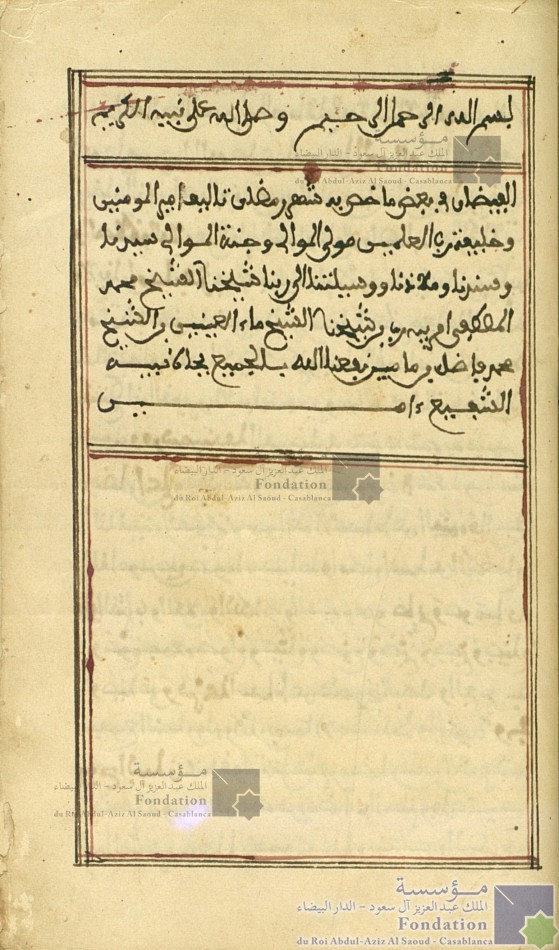 بسم الله الرحمن الرحيم وصلى الله على نبيه الكريم
مؤسسة
الملك عبد العزيز آل سعود - الدار البيضاء
Fondation
du Roi Abdul-Aziz Al Saoud - Casablanca
الفيضان في بعض ما خص به شهر رمضان تاليف امير المومنين
وخليفة رب العلمين مولى الموالي وجنة الموالي سيدنا
وسندنا وملاذنا ووسيلتنا الى ربنا شيخنا الشيخ محمد
المصطفى ابن شيخنا الشيخ ماء العينين بن الشيخ
محمد فاضل بن مامين نفعنا الله بالجميع بجاه نبيه
الشفيع ءاميـــن
مؤسسة
الملك عبد العزيز آل سعود - الدار البيضاء
Fondation
du Roi Abdul-Aziz Al Saoud - Casablanca
مؤسسة
الملك عبد العزيز آل سعود - الدار البيضاء
Fondation
du Roi Abdul-Aziz Al Saoud - Casablanca
مؤسسة
الملك عبد العزيز آل سعود - الدار البيضاء
Fondation
du Roi Abdul-Aziz Al Saoud - Casablanca